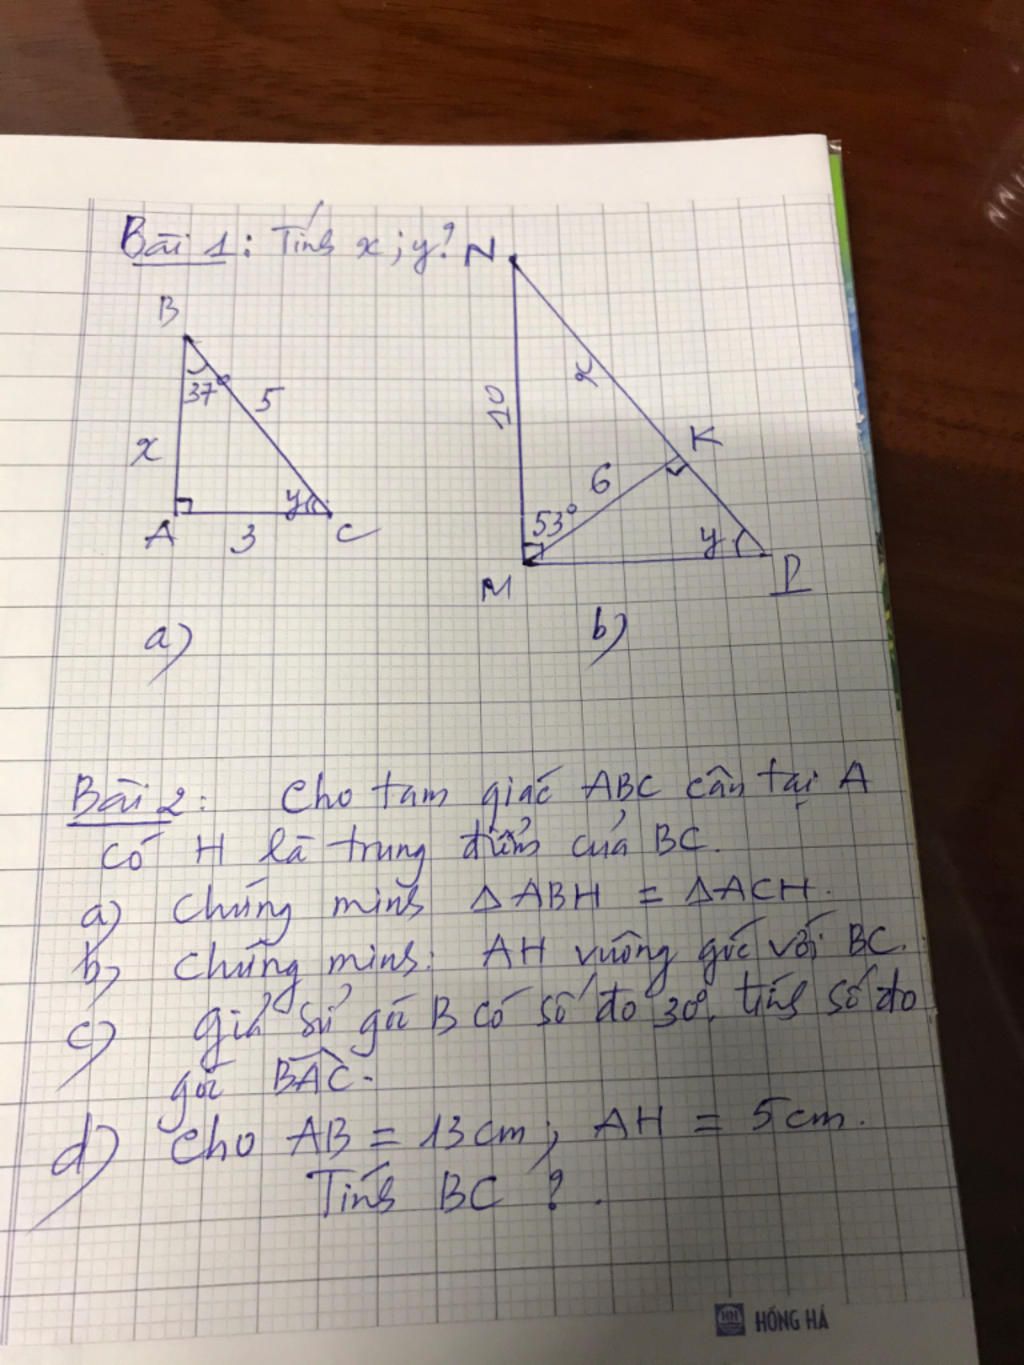 Bài 1: Tính x; y?
B
37°
5
x
y
A
3
C
a)
N
x
10
K
6
53°
y
M
P
b)
Bài 2: Cho tam giác ABC cân tại A
có H là trung điểm của BC.
a) Chứng minh △ABH = △ACH.
b) Chứng minh: AH vuông góc với BC.
c) giả sử góc B có số đo 30°. tính số đo
góc BAC.
d) Cho AB = 13cm; AH = 5cm.
Tính BC ?.
HH HỒNG HÀ